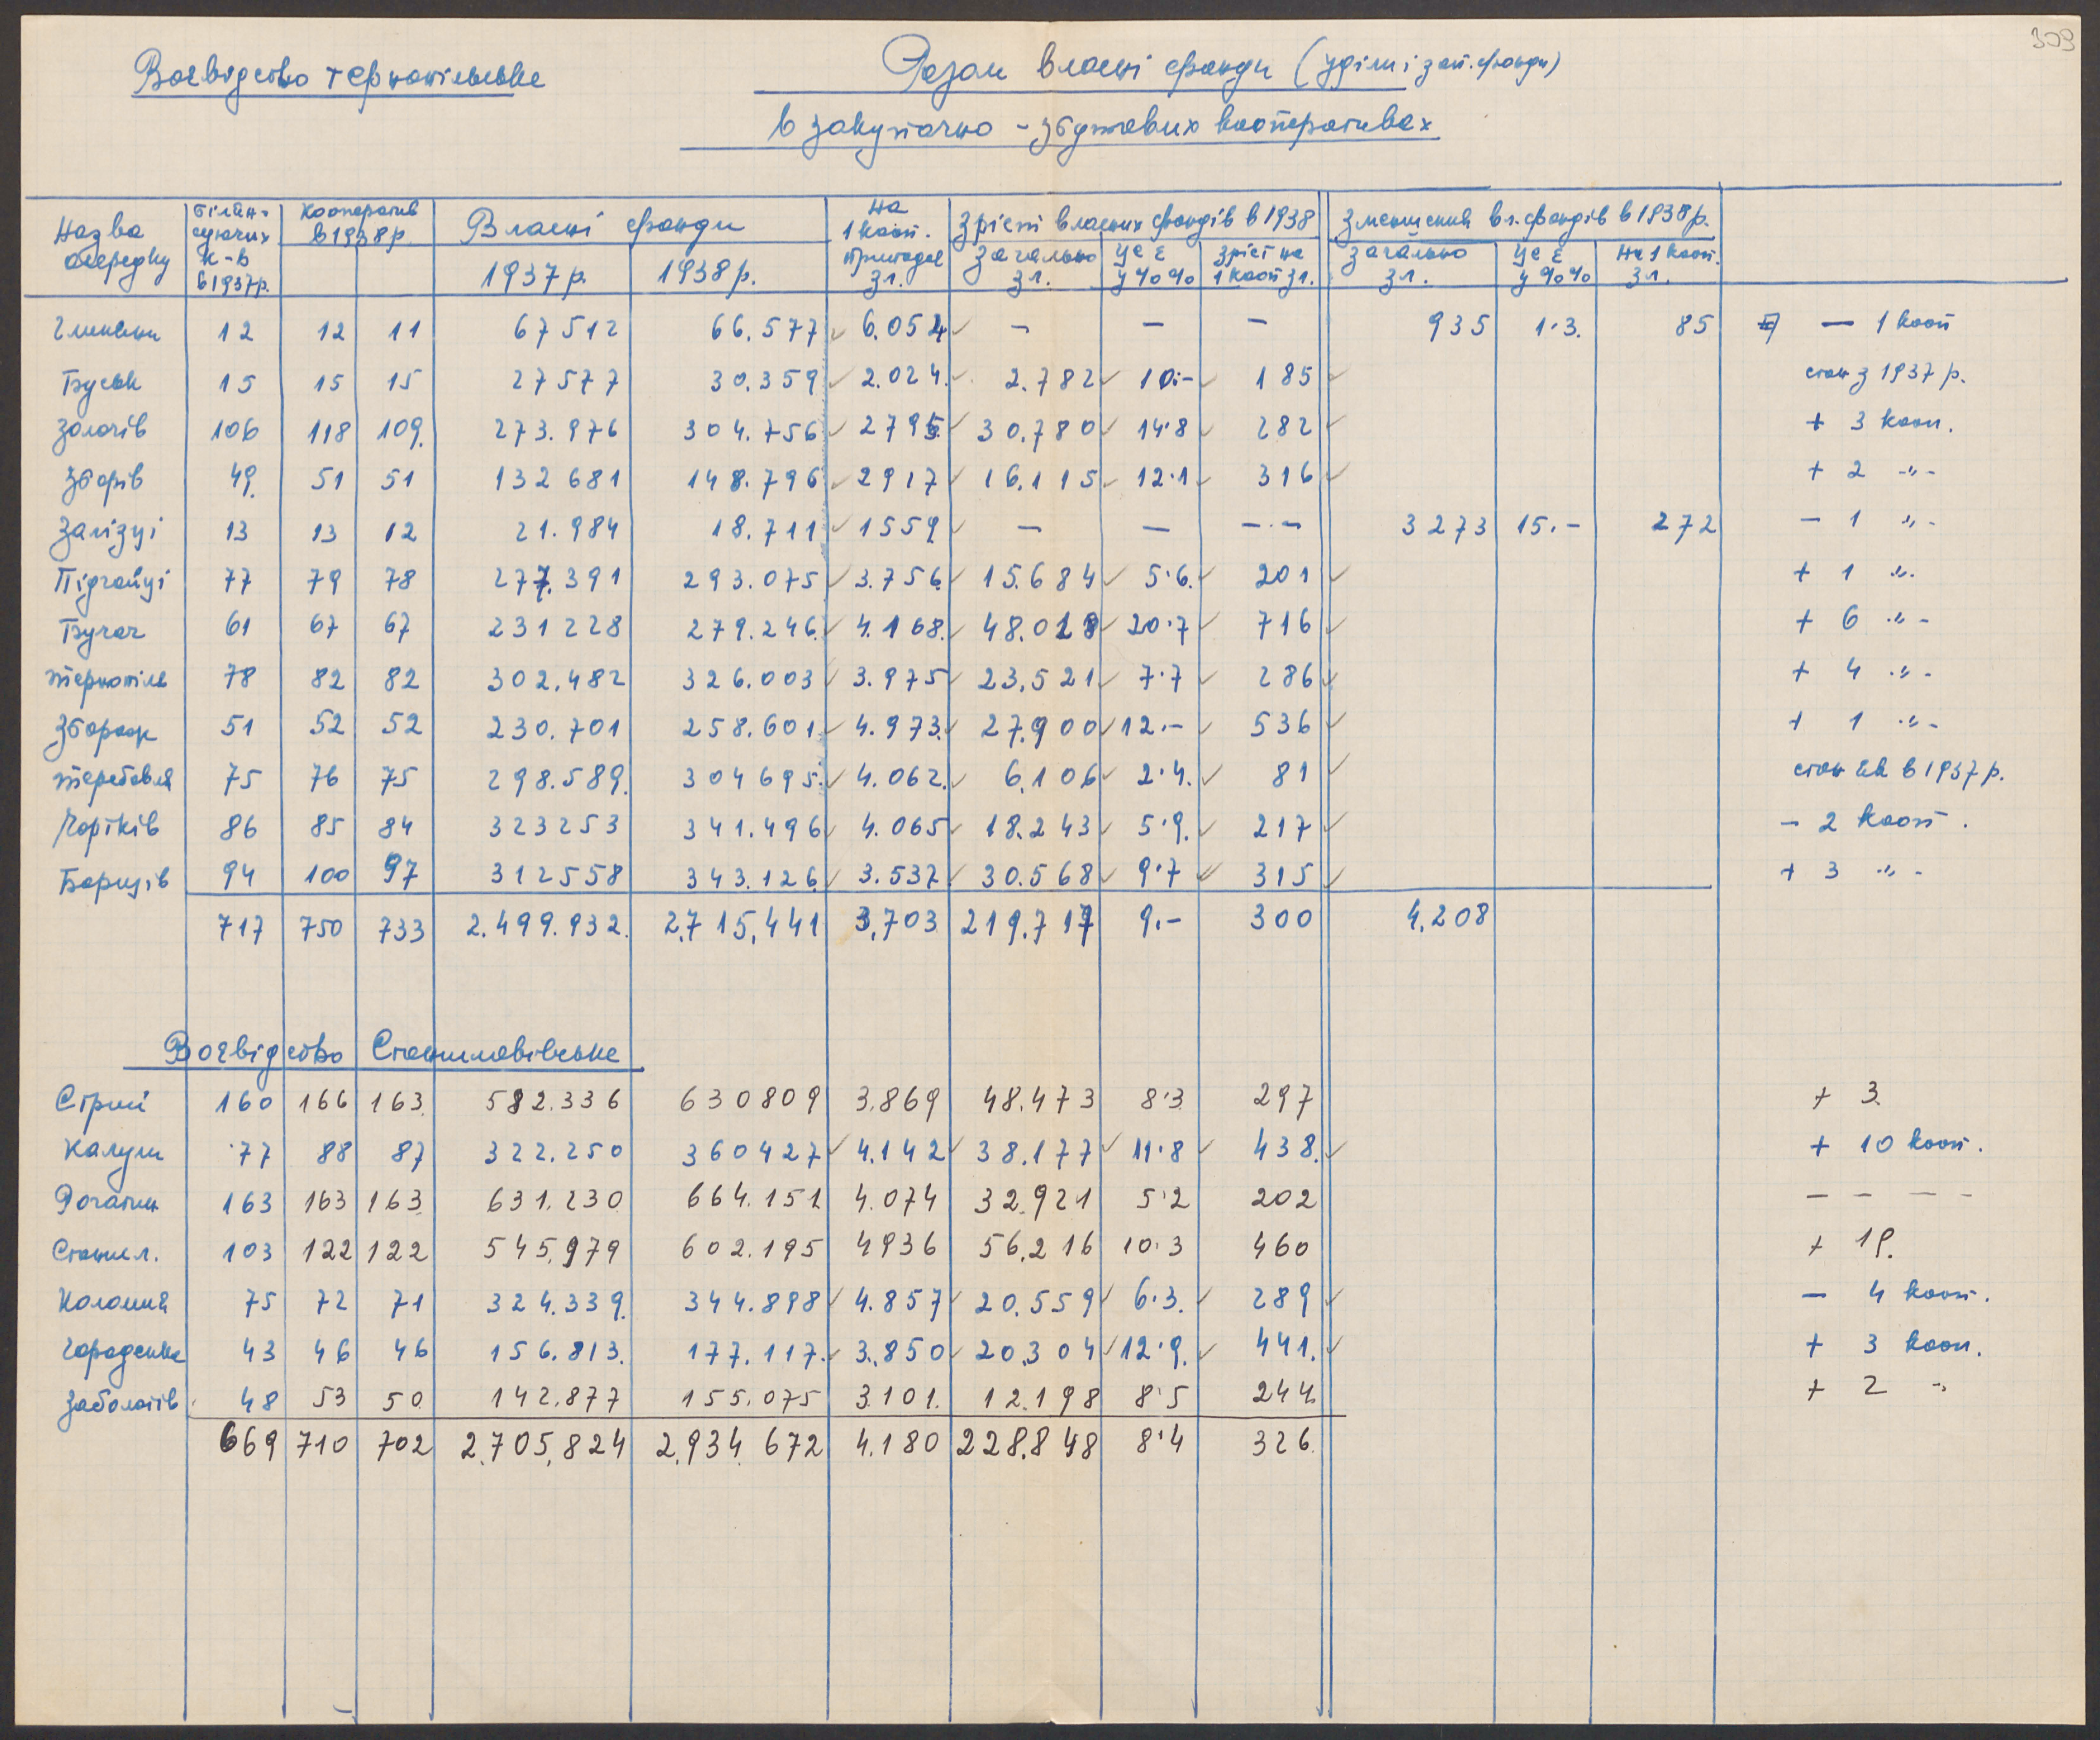 309
Воєвідство тернопільське
Разом власні фонди (уділи і зап. фонди)
в закупочно - збутових кооперативах
Назва осередку | білян-суючих к-в в 1937 р. | Кооператив в 1938 р. | Власні фонди 1937 р. | 1938 р. | На 1 кооп. припадає зл. | Зріст власних фондів в 1938 загально зл. | це є у %% | зріст на 1 кооп зл. | Зменшення вл. фондів в 1938 р. загально зл. | це є у %% | на 1 кооп. зл.
Глиняни 12 12 11 67512 66.577 6.052 — — — 935 1·3. 85 — 1 кооп
Буськ 15 15 15 27577 30.359 2.024. 2.782 10·- 185 стан з 1937 р.
Золочів 106 118 109. 273.976 304.756 2795. 30.780 14·8 282 + 3 кооп.
Зборів 49. 51 51 132681 148.796 2917 16.115 12·1 316 + 2 -"-
Залізці 13 13 12 21.984 18.711 1559 — — -·- 3273 15.- 272 - 1 "-
Підгайці 77 79 78 277.391 293.075 3.756. 15.684 5·6. 201 + 1 ".
Бучач 61 67 67 231228 279.246. 4.168. 48.018 20·7 716 + 6 "-
Тернопіль 78 82 82 302.482 326.003 3.975 23.521 7·7 286 + 4 "-
Збараж 51 52 52 230.701 258.601 4.973. 27.900 12.- 536 + 1 "-
Теребовля 75 76 75 298.589. 304695. 4.062. 6.106 2·4. 81 стан як в 1937 р.
Чортків 86 85 84 323253 341.496 4.065 18.243 5·9. 217 - 2 кооп.
Борщів 94 100 97 312558 343.126 3.537 30.568 9·7 315 + 3 "-
717 750 733 2.499.932. 2.715.441 3.703 219.717 9.- 300 4.208
Воєвідство Станиславівське
Стрий 160 166 163. 582.336 630809 3.869 48.473 8·3 297 + 3.
Калуш 77 88 87 322.250 360427 4.142 38.177 11·8 438. + 10 кооп.
Рогатин 163 163 163. 631.230 664.151 4.074 32.921 5·2 202 - - - -
Станисл. 103 122 122 545.979 602.195 4936 56.216 10·3 460 + 19.
Коломия 75 72 71 324.339. 344.898 4.857 20.559 6·3. 289 - 4 кооп.
Городенка 43 46 46 156.813. 177.117. 3.850 20.304 12·9. 441. + 3 кооп.
Заболотів 48 53 50 142.877 155.075 3.101. 12.198 8·5 244 + 2 "
669 710 702 2.705.824 2.934.672 4.180 228.848 8·4 326.